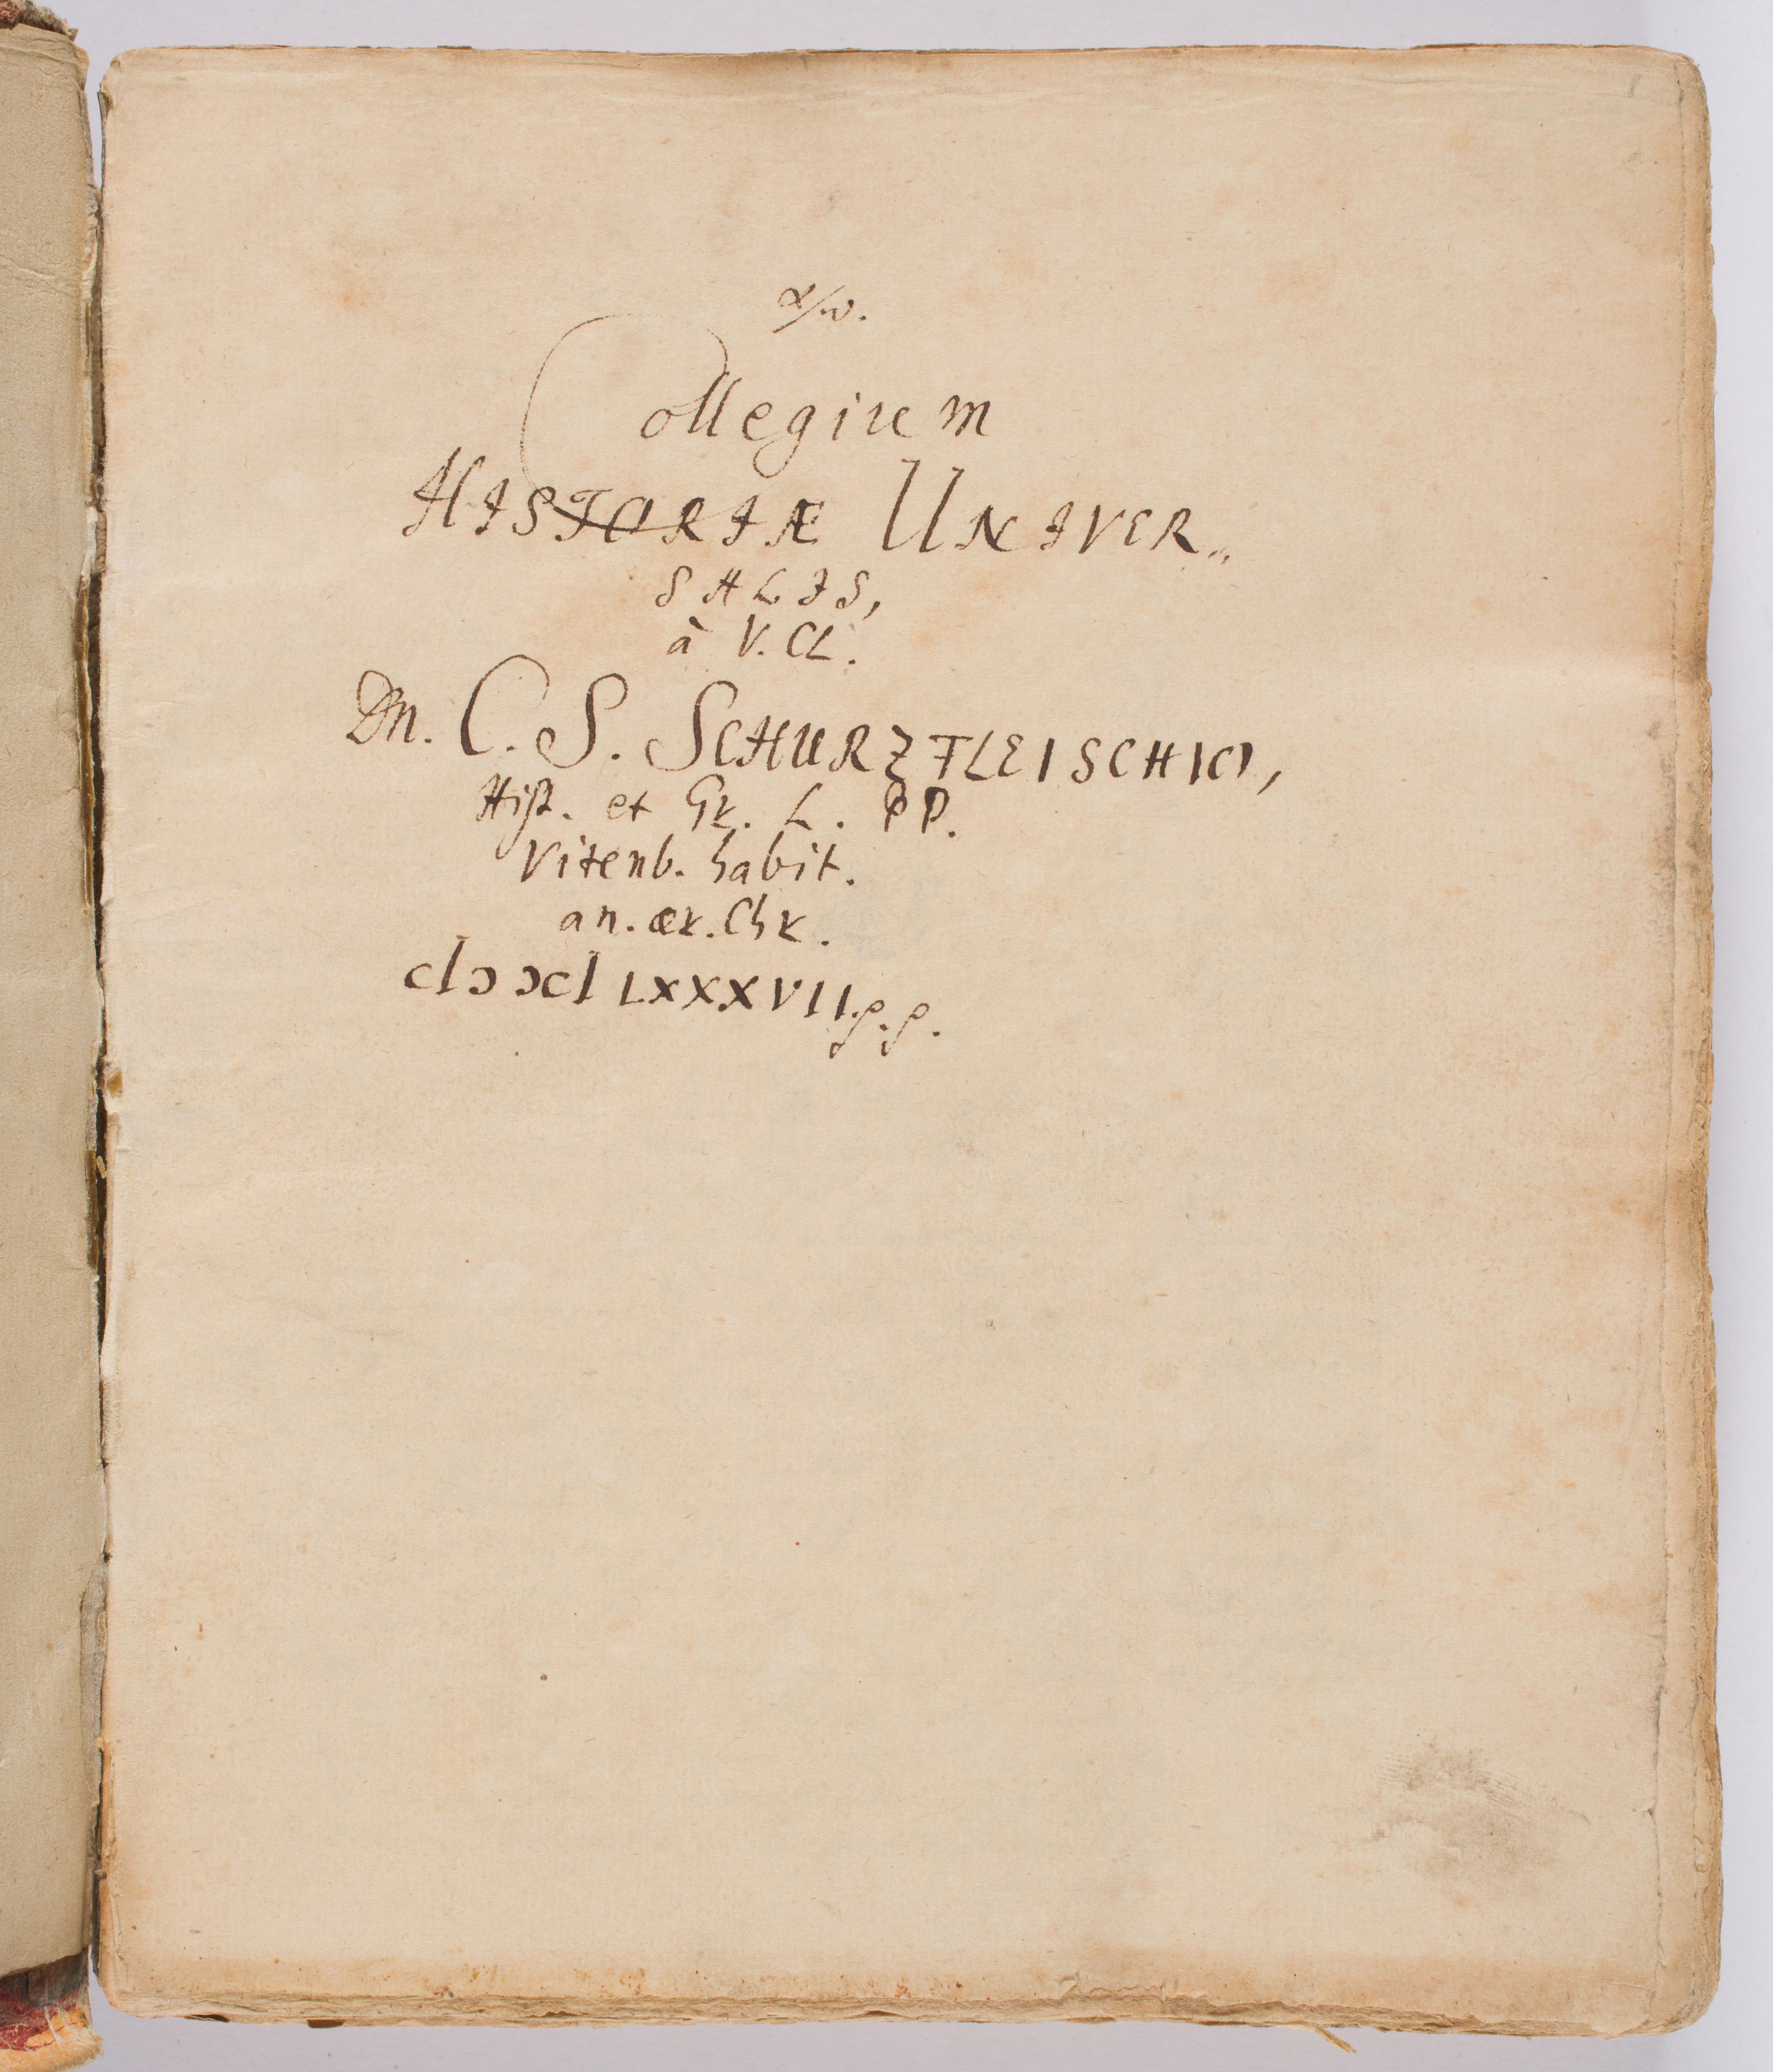 α/ω.
Collegium
HISTORIÆ UNIVER„
SALIS,
à V. CL.
Dn. C. S. SCHURZFLEISCHIO,
Hist. et Gr. L. P P.
Vitenb. habit.
an. ær. Chr.
CIƆ ƆCI LXXXVII. p. p.